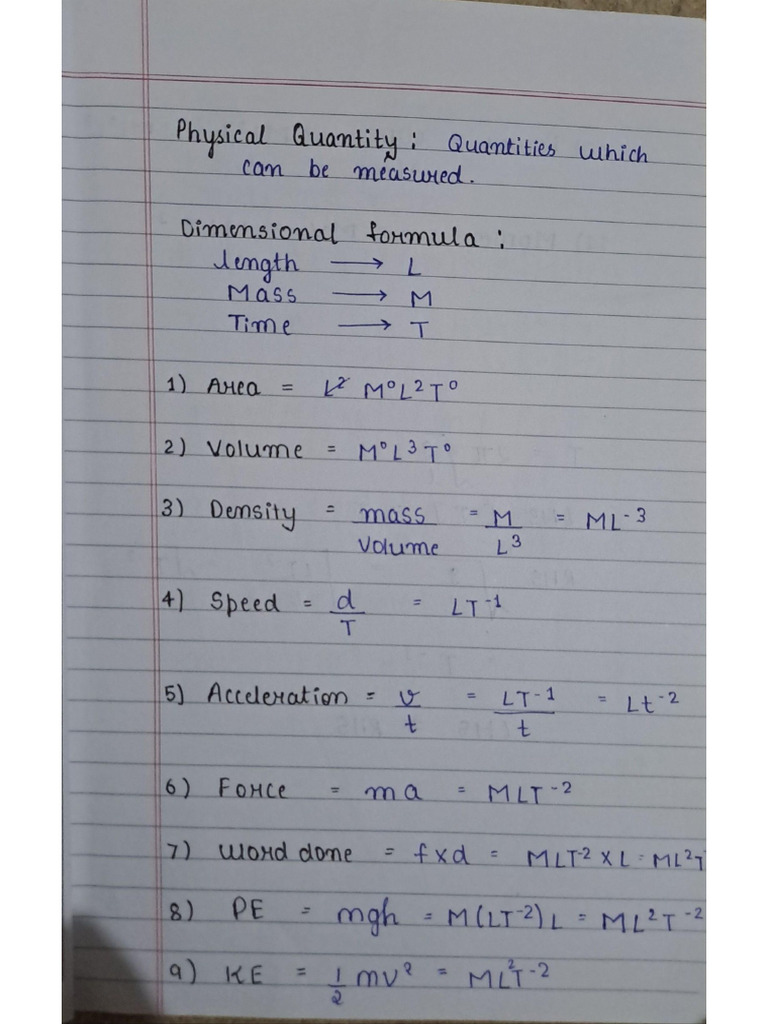 Physical Quantity : Quantities which
can be measured.
Dimensional formula :
length → L
Mass → M
Time → T
1) Area = L² M⁰L²T⁰
2) Volume = M⁰L³T⁰
3) Density = mass/Volume = M/L³ = ML⁻³
4) Speed = d/T = LT⁻¹
5) Acceleration = v/t = LT⁻¹/t = Lt⁻²
6) Force = ma = MLT⁻²
7) Word done = f×d = MLT⁻² × L = ML²T
8) PE = mgh = M(LT⁻²)L = ML²T⁻²
9) KE = 1/2 mv² = ML²T⁻²